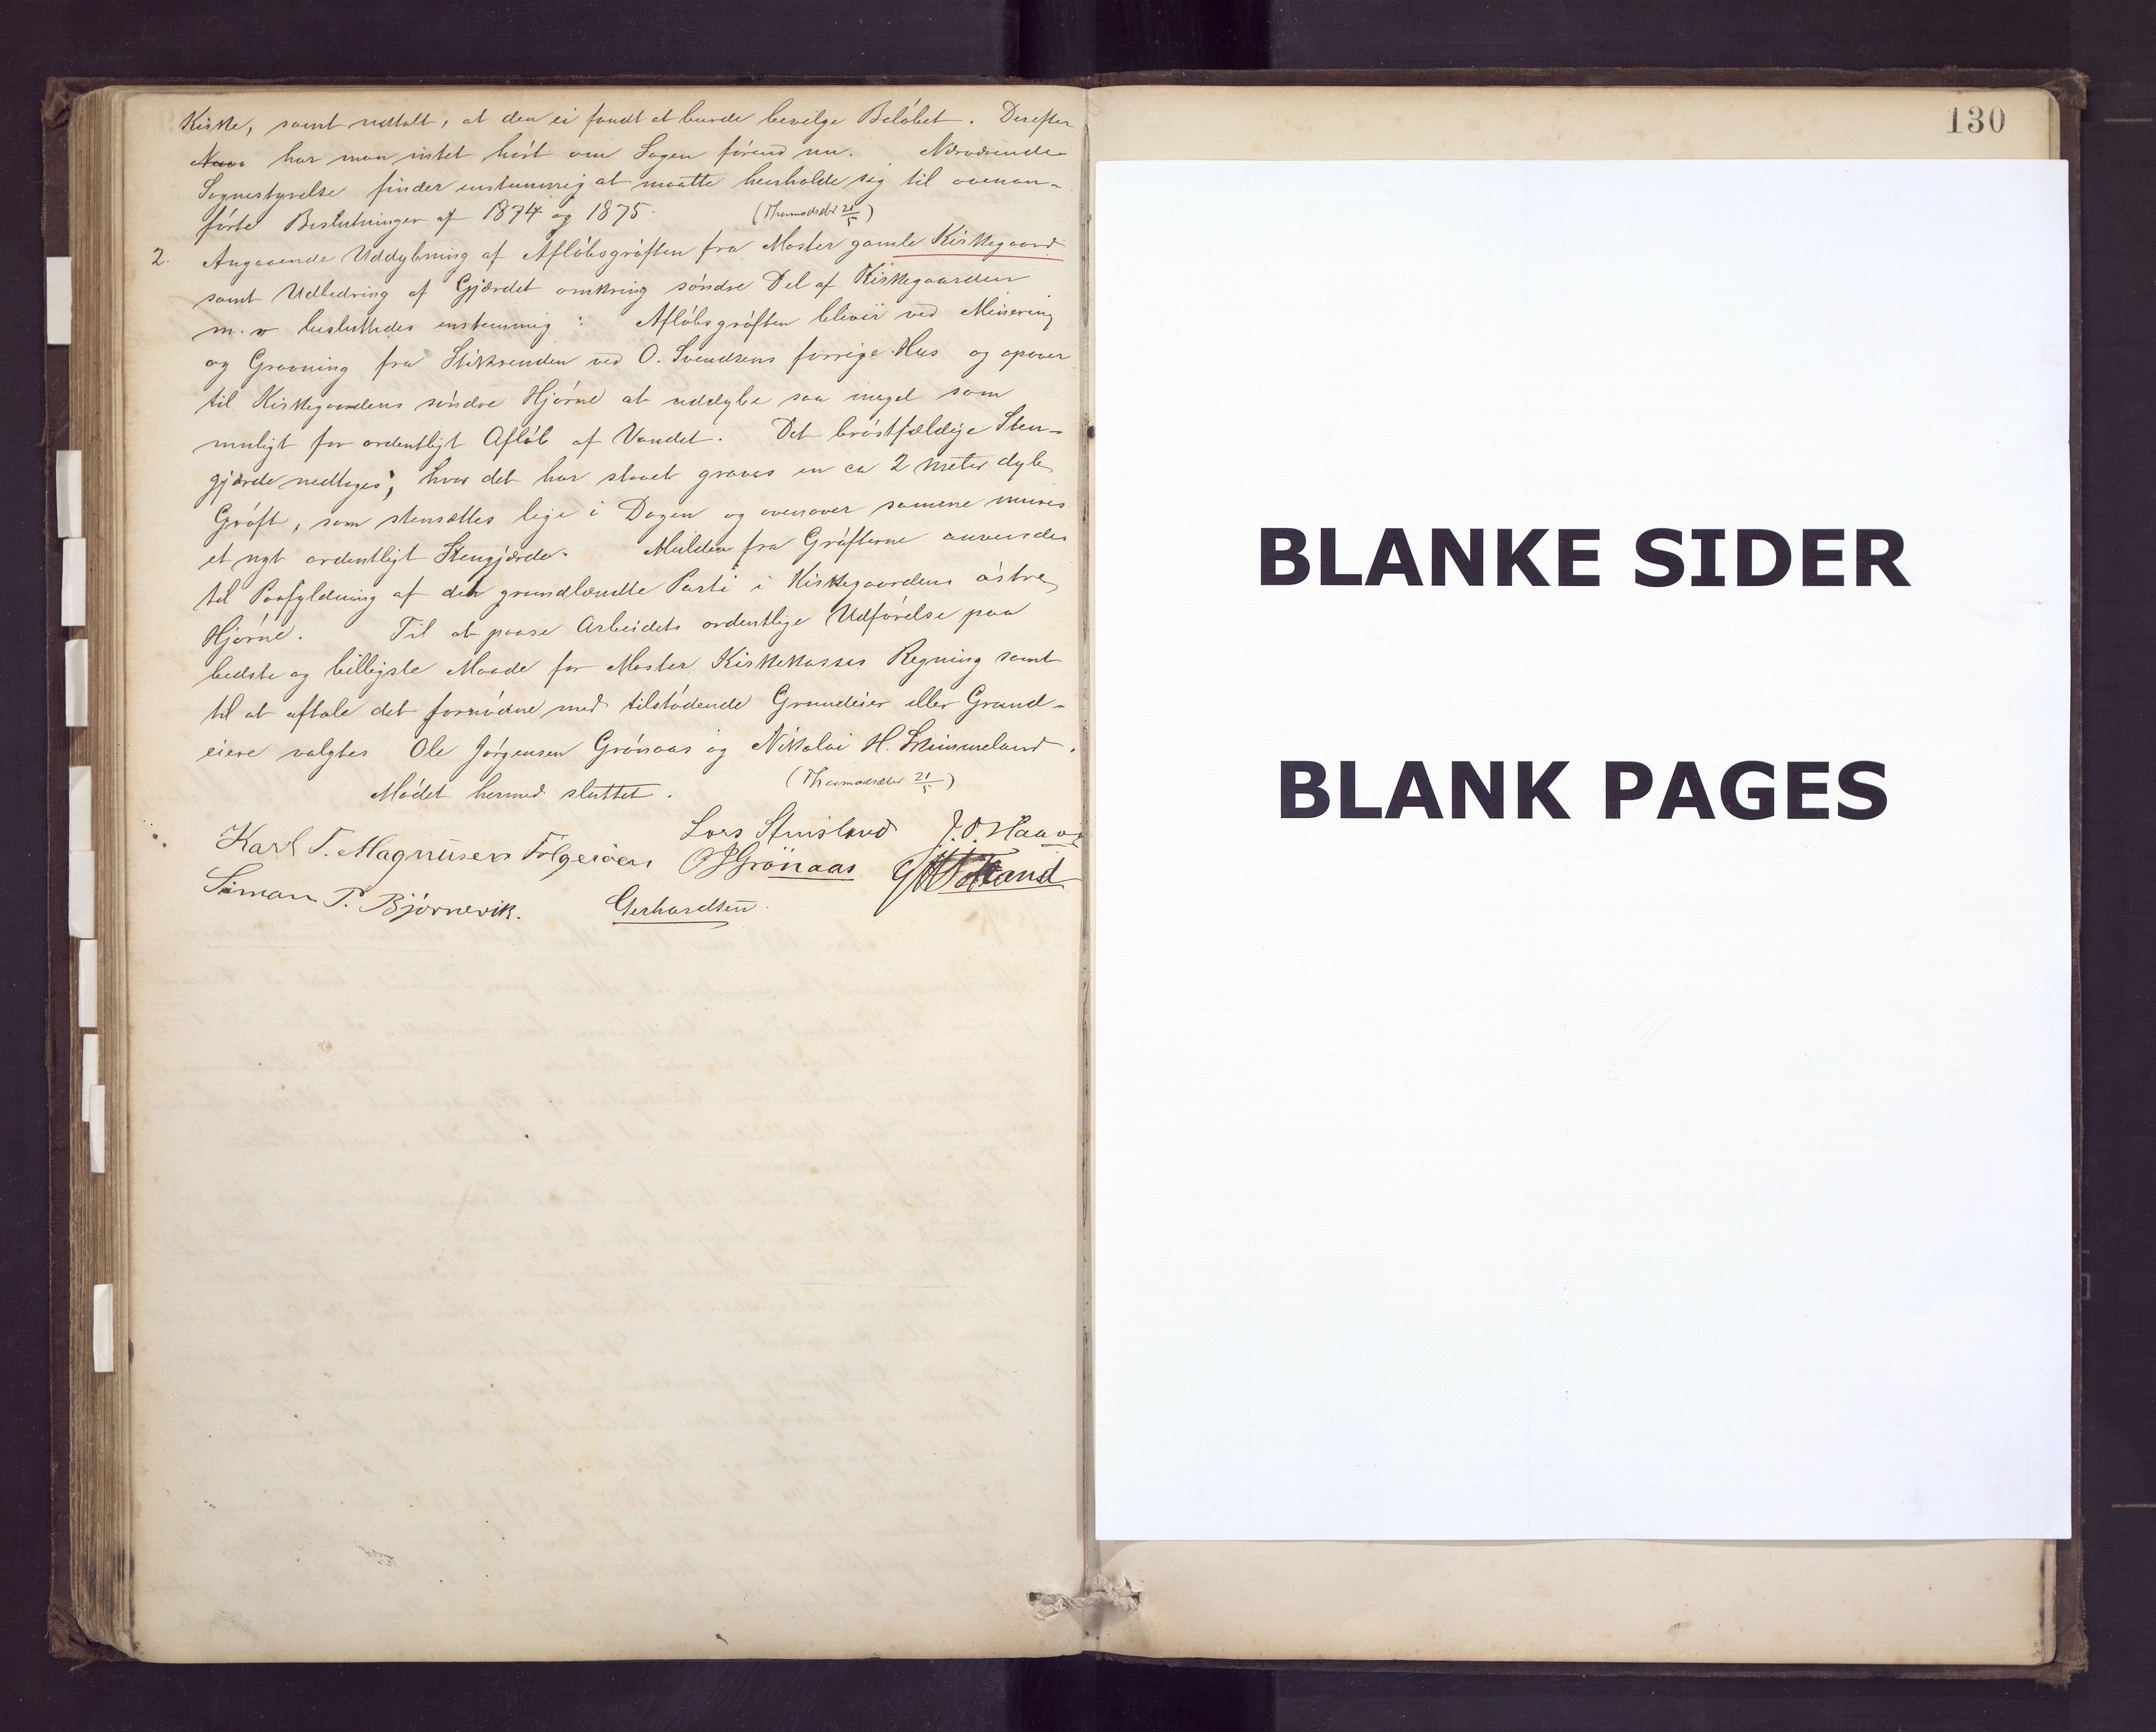 Kirke, samt udtalt, at den ei fandt at burde bevilge Beløbet. Derefter
har man intet hørt om Sagen førend nu. Nærværende
Sognestyrelse finder enstemmig at maatte henholde sig til ovenan-
førte Beslutninger af 1874 og 1875. (Thormodsæter 21/5)
2. Angaaende Uddybning af Afløbsgrøften fra Moster gamle Kirkegaard
samt Udbedring af Gjærdet omkring søndre Del af Kirkegaarden
m. v besluttedes enstemmig: Afløbsgrøften bliver ved Minering
og Gravning fra Stikrenden ved O. Svendsens forrige Hus og opover
til Kirkegaardens søndre Hjørne at uddybe saa meget som
muligt for ordentligt Afløb af Vandet. Det brøstfældige Sten-
gjærde nedtages; hvor det har staaet graves en ca 2 meter dyb
Grøft, som stensættes lige i Dagen og ovenover samme mures
et nyt ordentligt Stengjærde. Mulden fra Grøfterne anvendes
til Paafyldning af det grundlændte Parti i Kirkegaardens østre
Hjørne. Til at paase Arbeidets ordentlige Udførelse paa
bedste og billigste Maade for Moster Kirkekasses Regning samt
til at aftale det fornødne med tilstødende Grundeier eller Grund-
eiere valgtes Ole Jørgensen Grønaas og Nikolai H. Skimmeland.
Mødet hermed sluttet. (Thormodsæter 21/5)
Lars Stuisland J. O. Haavi
Karl T. Magnusen Folgerøen O J Grönaas
Siman P. Bjørnevik. Gerhardsen.
130
BLANKE SIDER
BLANK PAGES